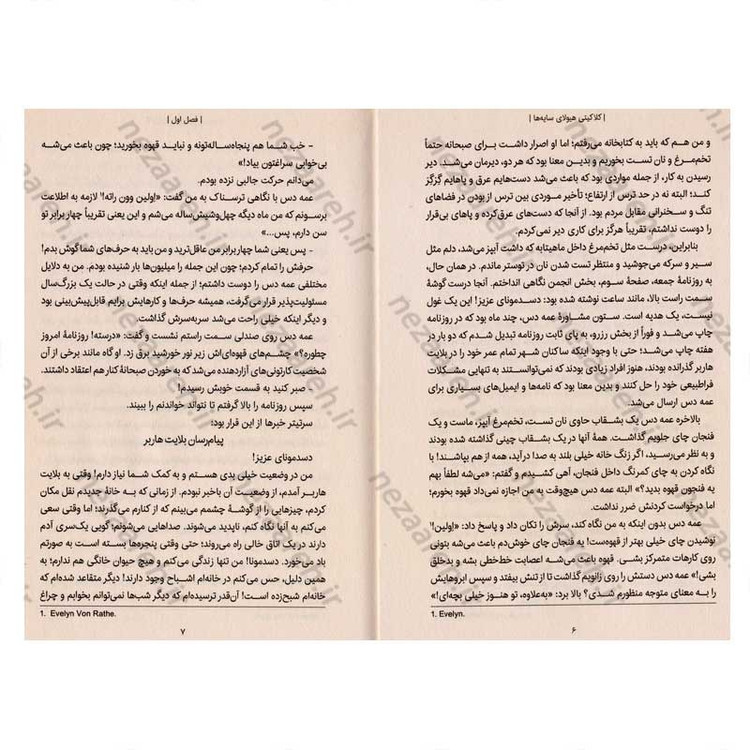 | کلاکیتی هیولای سایه‌ها |
و من هم که باید به کتابخانه می‌رفتم؛ اما او اصرار داشت برای صبحانه حتماً
تخم‌مرغ و نان تست بخوریم و بدین معنا بود که هر دو، دیرمان می‌شد. دیر
رسیدن به کار، از جمله مواردی بود که باعث می‌شد دست‌هایم عرق و پاهایم گزگز
کند؛ البته نه در حد ترس از ارتفاع؛ تأخیر موردی بین ترس از بودن در فضاهای
تنگ و سخنرانی مقابل مردم بود. از آنجا که دست‌های عرق‌کرده و پاهای بی‌قرار
را دوست نداشتم، تقریباً هرگز برای کاری دیر نمی‌کردم.
بنابراین، درست مثل تخم‌مرغ داخل ماهیتابه که داشت آبپز می‌شد، دلم مثل
سیر و سرکه می‌جوشید و منتظر تست شدن نان در توستر ماندم. در همان حال،
به روزنامهٔ جمعه، صفحهٔ سوم، بخش انجمن نگاهی انداختم. آنجا درست گوشهٔ
سمت راست بالا، مانند ساعت نوشته شده بود: دسدمونای عزیز! این یک غول
نیست، یک هدیه است. ستون مشاورهٔ عمه دس، چند ماه بود که در روزنامه
چاپ می‌شد و فوراً از بخش رزرو، به پای ثابت روزنامه تبدیل شدم که دو بار در
هفته چاپ می‌شد؛ حتی با وجود اینکه ساکنان شهر تمام عمر خود را در بلایت
هاربر گذرانده بودند، هنوز افراد زیادی بودند که نمی‌توانستند به تنهایی مشکلات
فراطبیعی خود را حل کنند و بدین معنا بود که نامه‌ها و ایمیل‌های بسیاری برای
عمه دس ارسال می‌شد.
بالاخره عمه دس یک بشقاب حاوی نان تست، تخم‌مرغ آبپز، ماست و یک
فنجان چای جلویم گذاشت. همهٔ آنها در یک بشقاب چینی گذاشته شده بودند
و به نظر می‌رسید، اگر زنگ خانه خیلی بلند به صدا درآید، همه از هم بپاشند! با
نگاه کردن به چای کمرنگ داخل فنجان، آهی کشیدم و گفتم: «می‌شه لطفاً بهم
یه فنجون قهوه بدید؟» البته عمه دس هیچ‌وقت به من اجازه نمی‌داد قهوه بخورم؛
اما درخواست کردنش ضرر نداشت.
عمه دس بدون اینکه به من نگاه کند، سرش را تکان داد و پاسخ داد: «اولین!¹
نوشیدن چای خیلی بهتر از قهوه‌ست! یه فنجان چای خوش‌دم باعث می‌شه بتونی
روی کارهات متمرکز بشی. قهوه باعث می‌شه اعصابت خط‌خطی بشه و بدخلق
بشی!» عمه دس دستش را روی زانویم گذاشت تا از تنش بیفتد و سپس ابروهایش
را به معنای متوجه منظورم شدی؟ بالا برد: «به‌علاوه، تو هنوز خیلی بچه‌ای!»
1. Evelyn.
۶
| فصل اول |
- خب شما هم پنجاه‌ساله‌تونه و نباید قهوه بخورید؛ چون باعث می‌شه
بی‌خوابی سراغتون بیاد!»
می‌دانم حرکت جالبی نزده بودم.
عمه دس با نگاهی ترسناک به من گفت: «اولین وون راته!¹ لازمه به اطلاعت
برسونم که من ماه دیگه چهل‌وشیش‌ساله می‌شم و این یعنی تقریباً چهار برابر تو
سن دارم، پس...»
- پس یعنی شما چهار برابر من عاقل‌ترید و من باید به حرف‌های شما گوش بدم!
حرفش را تمام کردم؛ چون این جمله را میلیون‌ها بار شنیده بودم. من به دلایل
مختلفی عمه دس را دوست داشتم؛ از جمله اینکه وقتی در حالت یک بزرگ‌سال
مسئولیت‌پذیر قرار می‌گرفت، همیشه حرف‌ها و کارهایش برایم قابل‌پیش‌بینی بود
و دیگر اینکه خیلی راحت می‌شد سربه‌سرش گذاشت.
عمه دس روی صندلی سمت راستم نشست و گفت: «درسته! روزنامهٔ امروز
چطوره؟» چشم‌های قهوه‌ای‌اش زیر نور خورشید برق زد. او گاه مانند برخی از آن
شخصیت کارتونی‌های آزاردهنده می‌شد که به خوردن صبحانهٔ کنار هم اعتقاد داشتند.
- صبر کنید به قسمت خوبش رسیدم!
سپس روزنامه را بالا گرفتم تا نتواند خواندنم را ببیند.
سرتیتر خبرها از این قرار بود:
پیام‌رسان بلایت هاربر
دسدمونای عزیز!
من در وضعیت خیلی بدی هستم و به کمک شما نیاز دارم! وقتی به بلایت
هاربر آمدم، از وضعیت آن باخبر نبودم. از زمانی که به خانهٔ جدیدم نقل مکان
کردم، چیزهایی را از گوشهٔ چشمم می‌بینم که از کنارم می‌گذرند؛ اما وقتی سعی
می‌کنم به آنها نگاه کنم، ناپدید می‌شوند. صداهایی می‌شنوم؛ گویی یک‌سری آدم
دارند در یک اتاق خالی راه می‌روند؛ حتی وقتی پنجره‌ها بسته است به صورتم
باد می‌خورد. دسدمونا! من تنها زندگی می‌کنم و هیچ حیوان خانگی هم ندارم؛ به
همین دلیل، حس می‌کنم در خانه‌ام اشباح وجود دارند! دیگر متقاعد شده‌ام که
خانه‌ام شبح‌زده است! آن‌قدر ترسیده‌ام که دیگر شب‌ها نمی‌توانم بخوابم و چراغ
1. Evelyn Von Rathe.
۷
nezaareh.ir